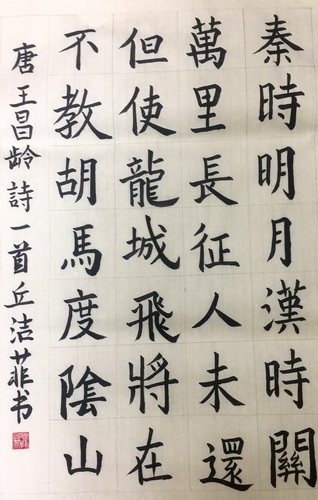 秦時明月漢時關
萬里長征人未還
但使龍城飛將在
不教胡馬度陰山
唐王昌龄詩一首丘洁菲书